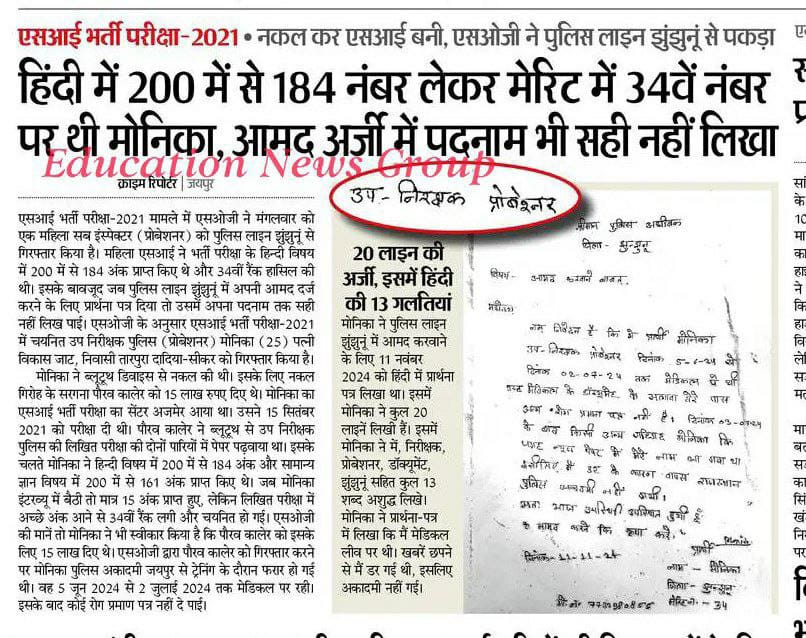 एसआई भर्ती परीक्षा-2021 • नकल कर एसआई बनी, एसओजी ने पुलिस लाइन झुंझुनूं से पकड़ा
हिंदी में 200 में से 184 नंबर लेकर मेरिट में 34वें नंबर
पर थी मोनिका, आमद अर्जी में पदनाम भी सही नहीं लिखा
Education News Group
क्राइम रिपोर्टर | जयपुर
एसआई भर्ती परीक्षा-2021 मामले में एसओजी ने मंगलवार को
एक महिला सब इंस्पेक्टर (प्रोबेशनर) को पुलिस लाइन झुंझुनूं से
गिरफ्तार किया है। महिला एसआई ने भर्ती परीक्षा के हिन्दी विषय
में 200 में से 184 अंक प्राप्त किए थे और 34वीं रैंक हासिल की
थी। इसके बावजूद जब पुलिस लाइन झुंझुनूं में अपनी आमद दर्ज
करने के लिए प्रार्थना पत्र दिया तो उसमें अपना पदनाम तक सही
नहीं लिख पाई। एसओजी के अनुसार एसआई भर्ती परीक्षा-2021
में चयनित उप निरीक्षक पुलिस (प्रोबेशनर) मोनिका (25) पत्नी
विकास जाट, निवासी तारपुरा दादिया-सीकर को गिरफ्तार किया है।
मोनिका ने ब्लूटूथ डिवाइस से नकल की थी। इसके लिए नकल
गिरोह के सरगना पौरव कालेर को 15 लाख रुपए दिए थे। मोनिका का
एसआई भर्ती परीक्षा का सेंटर अजमेर आया था। उसने 15 सितंबर
2021 को परीक्षा दी थी। पौरव कालेर ने ब्लूटूथ से उप निरीक्षक
पुलिस की लिखित परीक्षा की दोनों पारियों में पेपर पढ़वाया था। इसके
चलते मोनिका ने हिन्दी विषय में 200 में से 184 अंक और सामान्य
ज्ञान विषय में 200 में से 161 अंक प्राप्त किए थे। जब मोनिका
इंटरव्यू में बैठी तो मात्र 15 अंक प्राप्त हुए, लेकिन लिखित परीक्षा में
अच्छे अंक आने से 34वीं रैंक लगी और चयनित हो गई। एसओजी
की मानें तो मोनिका ने भी स्वीकार किया है कि पौरव कालेर को इसके
लिए 15 लाख दिए थे। एसओजी द्वारा पौरव कालेर को गिरफ्तार करने
पर मोनिका पुलिस अकादमी जयपुर से ट्रेनिंग के दौरान फरार हो गई
थी। वह 5 जून 2024 से 2 जुलाई 2024 तक मेडिकल पर रही।
इसके बाद कोई रोग प्रमाण पत्र नहीं दे पाई।
उप-निरक्षक प्रोबेश्नर
20 लाइन की
अर्जी, इसमें हिंदी
की 13 गलतियां
मोनिका ने पुलिस लाइन
झुंझुनूं में आमद करवाने
के लिए 11 नवंबर
2024 को हिंदी में प्रार्थना
पत्र लिखा था। इसमें
मोनिका ने कुल 20
लाइनें लिखीं हैं। इसमें
मोनिका ने में, निरीक्षक,
प्रोबेशनर, डॉक्यूमेंट,
झुंझुनूं सहित कुल 13
शब्द अशुद्ध लिखे।
मोनिका ने प्रार्थना-पत्र
में लिखा कि मैं मेडिकल
लीव पर थी। खबरें छपने
से मैं डर गई थी, इसलिए
अकादमी नहीं गई।
श्रीमान पुलिस अधीक्षक
जिला - झुन्झुनू
विषय - आमद करवाने बाबत्
महोदय
निवेदन है कि मे प्रार्थी मोनिका
उप-निरक्षक प्रोबेश्नर दिनांक 5-6-24 से
दिनांक 02-07-24 तक मेडिकल पे थी
के अलावा मेरे पास
अन्य प्रमाण पत्र नही है। दिनांक
के बाद किसी अन्य मोनिका कि
न्यूज पेपर मे मेरा नाम आ गया था
इसलिए मे डर के कारण वापस राजस्थान
पुलिस नही आयी।
उपस्थिती
करने कि कृपा करे।
प्रार्थी
दिनांक-11-11-24
नाम - मोनिका
जिला - झुन्झुनू
मेरिट नं - 34